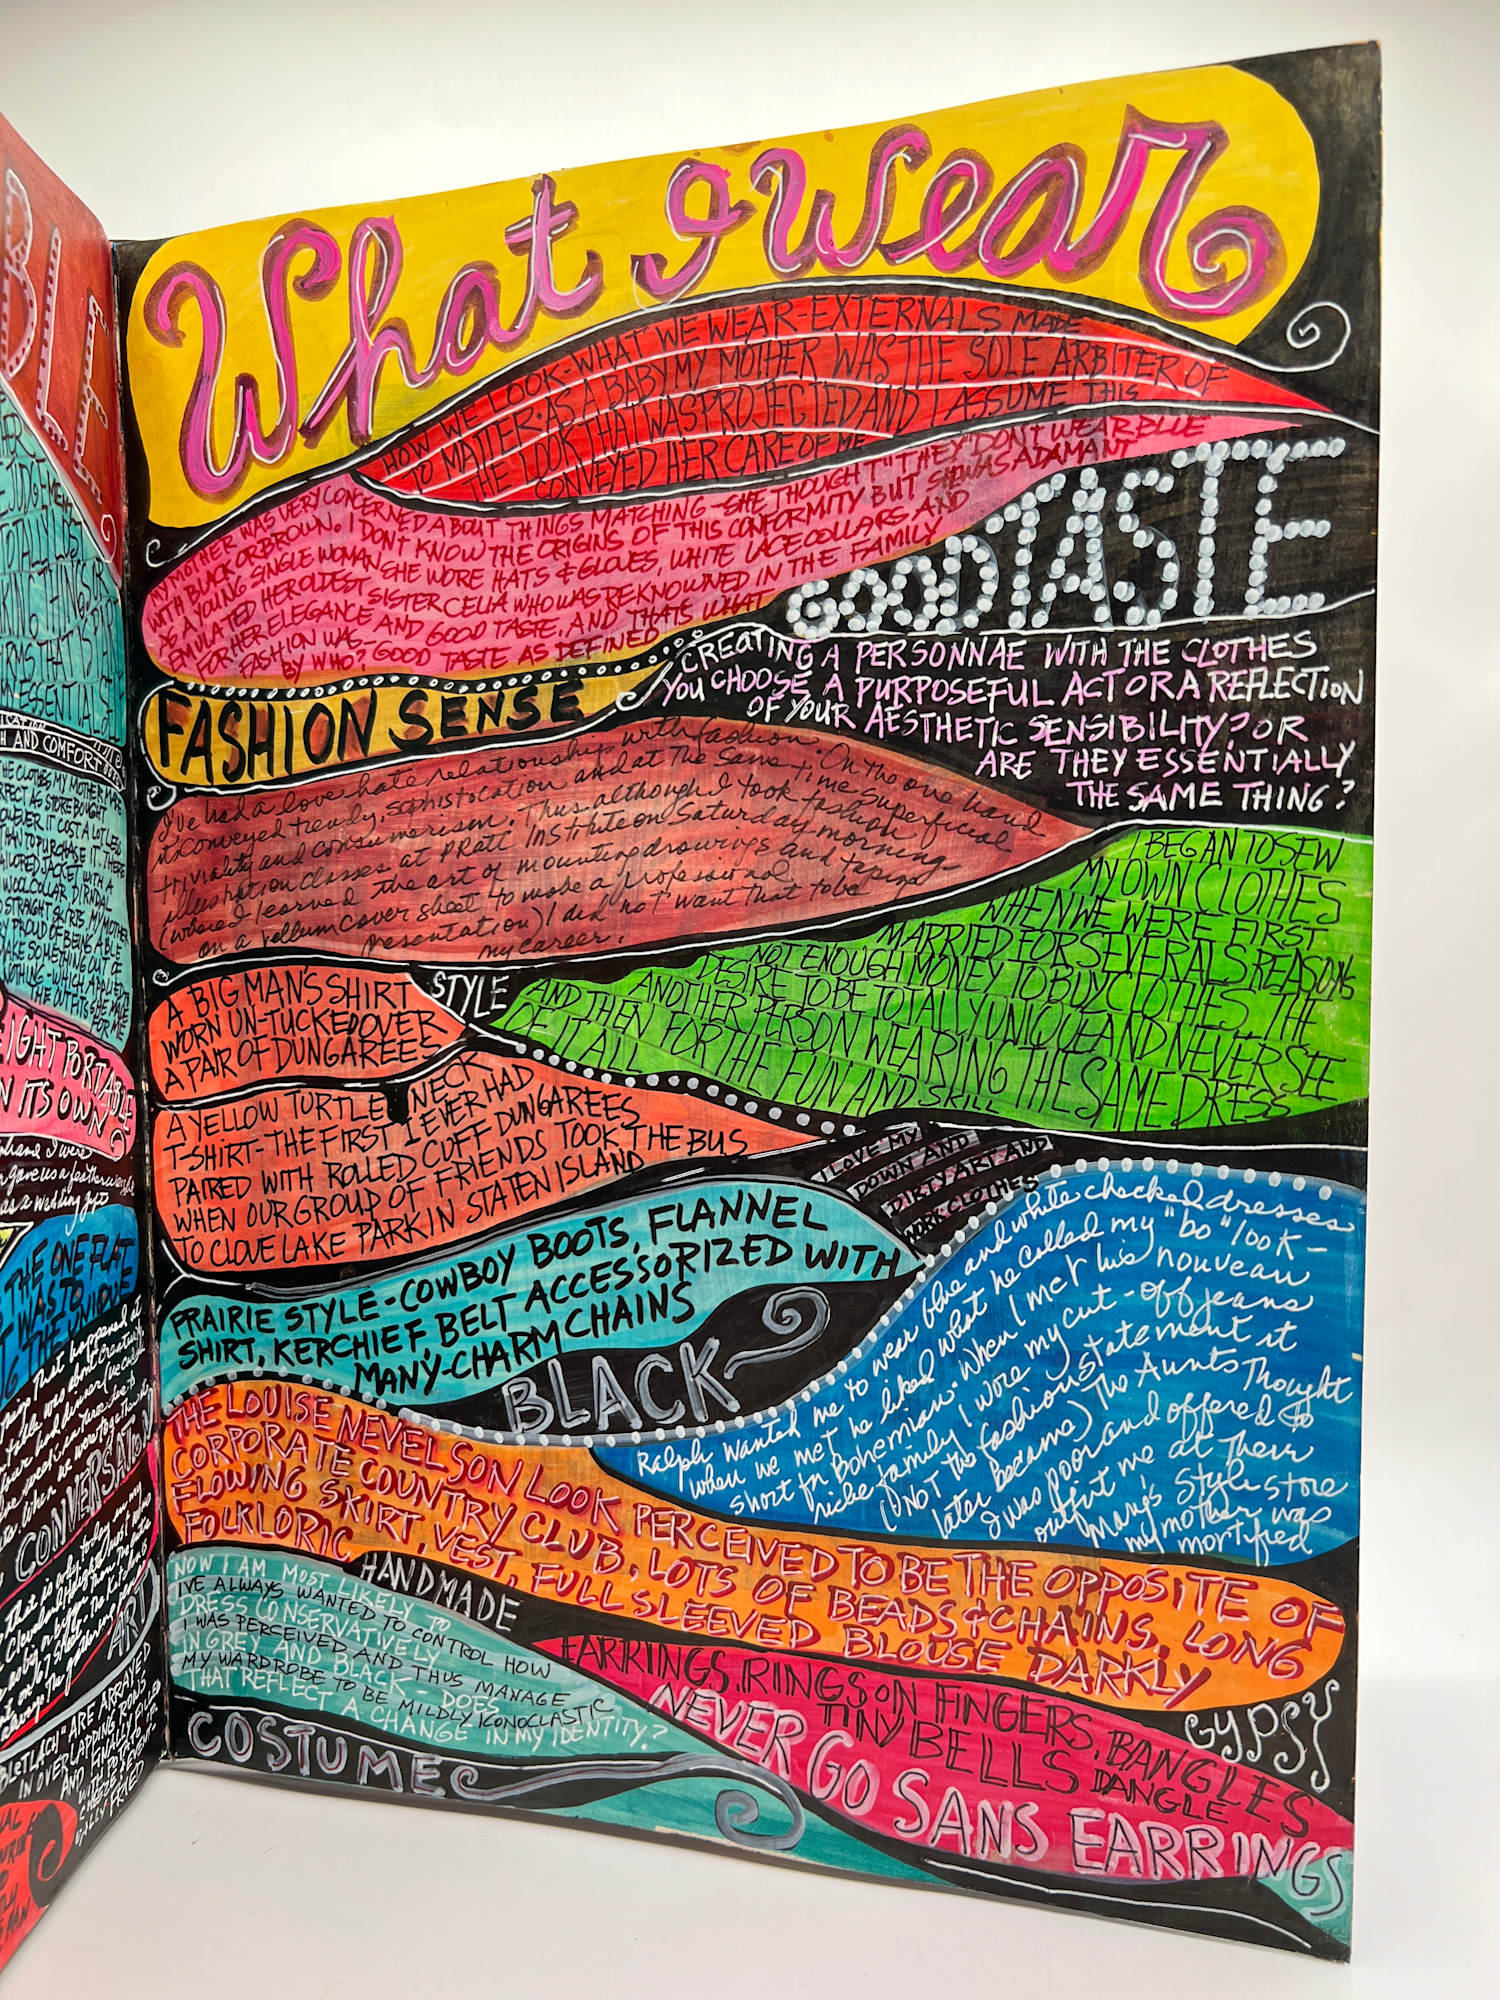 What I Wear
HOW WE LOOK-WHAT WE WEAR-EXTERNALS MADE
TO MATTER. AS A BABY MY MOTHER WAS THE SOLE ARBITER OF
THE LOOK THAT WAS PROJECTED AND I ASSUME THIS
CONVEYED HER CARE OF ME
MY MOTHER WAS VERY CONCERNED ABOUT THINGS MATCHING-SHE THOUGHT "THEY" DON'T WEAR BLUE
WITH BLACK OR BROWN. I DON'T KNOW THE ORIGINS OF THIS CONFORMITY BUT SHE WAS ADAMANT
AS A YOUNG SINGLE WOMAN SHE WORE HATS & GLOVES, WHITE LACE COLLARS AND
EMULATED HER OLDEST SISTER CELIA WHO WAS REKNOWNED IN THE FAMILY
FOR HER ELEGANCE AND GOOD TASTE. AND THATS WHAT
FASHION WAS- GOOD TASTE AS DEFINED
BY WHO?
GOOD TASTE
CREATING A PERSONNAE WITH THE CLOTHES
YOU CHOOSE A PURPOSEFUL ACT OR A REFLECTION
OF YOUR AESTHETIC SENSIBILITY? OR
ARE THEY ESSENTIALLY
THE SAME THING?
FASHION SENSE
I've had a love hate relationship with fashion. On the one hand
it conveyed trendy, sophistocation and at the same time superficial
triviality and consumerism. Thus although I took fashion
illustration classes at Pratt Institute on Saturday mornings
(where I learned the art of mounting drawings and taping
on a vellum cover sheet to make a professional
presentation) I did not want that to be
my career.
I BEGAN TO SEW
MY OWN CLOTHES
WHEN WE WERE FIRST
MARRIED FOR SEVERAL REASONS
NOT ENOUGH MONEY TO BUY CLOTHES, THE
DESIRE TO BE TOTALLY UNIQUE AND NEVER SEE
ANOTHER PERSON WEARING THE SAME DRESS
AND THEN FOR THE FUN AND SKILL
OF IT ALL
STYLE
A BIG MAN'S SHIRT
WORN UN-TUCKED OVER
A PAIR OF DUNGAREES
A YELLOW TURTLE NECK
T-SHIRT-THE FIRST I EVER HAD
PAIRED WITH ROLLED CUFF DUNGAREES
WHEN OUR GROUP OF FRIENDS TOOK THE BUS
TO CLOVE LAKE PARK IN STATEN ISLAND
I LOVE MY
DOWN AND
DIRTY ART AND
WORK CLOTHES
PRAIRIE STYLE-COWBOY BOOTS, FLANNEL
SHIRT, KERCHIEF, BELT ACCESSORIZED WITH
MANY-CHARM CHAINS
BLACK
Ralph wanted me to wear blue and white checked dresses
when we met he liked what he called my "bo" look-
short for Bohemian. When I met his nouveau
riche family I wore my cut-off jeans
(not the fashion statement it
later became) The Aunts Thought
I was poor and offered to
outfit me at Their
Mary's Style store
my mother was
mortified
THE LOUISE NEVELSON LOOK PERCEIVED TO BE THE OPPOSITE OF
CORPORATE COUNTRY CLUB. LOTS OF BEADS & CHAINS, LONG
FLOWING SKIRT, VEST, FULL SLEEVED BLOUSE DARKLY
FOLKLORIC
HANDMADE
NOW I AM MOST LIKELY TO
DRESS CONSERVATIVELY
IN GREY AND BLACK - DOES
THAT REFLECT A CHANGE IN MY IDENTITY?
I'VE ALWAYS WANTED TO CONTROL HOW
I WAS PERCEIVED AND THUS MANAGE
MY WARDROBE TO BE MILDLY ICONOCLASTIC
EARRINGS, RINGS ON FINGERS, BANGLES
TINY BELLS DANGLE
NEVER GO SANS EARRINGS
GYPSY
COSTUME
AND COMFORT
THE CLOTHES MY MOTHER MADE
STORE BOUGHT
HOWEVER IT COST A LOT LESS
THAN TO PURCHASE IT. THERE
JACKET WITH A
WOOL COLLAR DIRNDAL
STRAIGHT SKIRTS, MY MOTHER
PROUD OF BEING ABLE
MAKE SOMETHING OUT OF
NOTHING-WHICH APPLIED TO
THE OUTFITS SHE MADE
FOR ME
PORTABLE
ON ITS OWN
THE ONE FLAT
WAS TO
CONVERSATION
ART
ARE ARRAYED
IN OVERLAPPING ROWS
AND FINALLY FILLED